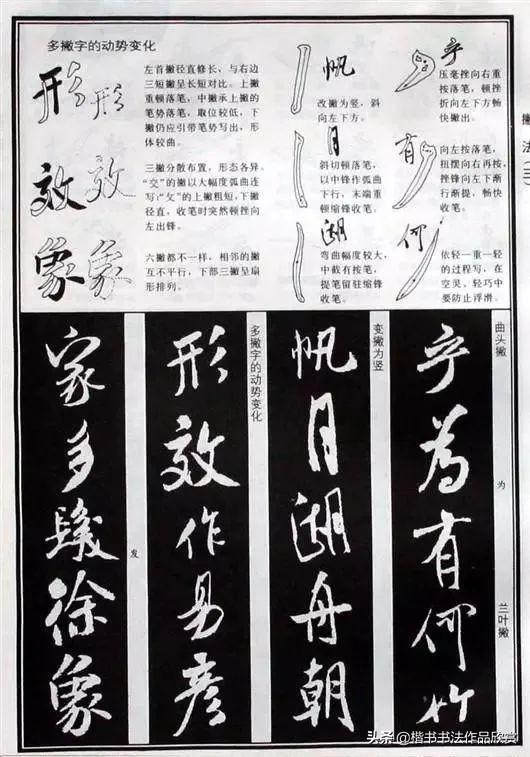 多撇字的动势变化
形形
左首撇径直修长，与右边
三短撇呈长短对比。上撇
重顿落笔，中撇承上撇的
笔势落笔，取位较低，下
撇仍应引带笔势写出，形
体较曲。
效效
三撇分散布置，形态各异。
“交”的撇以大幅度弧曲连
写；“攵”的上撇粗短，下撇
径直，收笔时突然顿挫向
左出锋。
象象
六撇都不一样，相邻的撇
互不平行，下部三撇呈扇
形排列。
帆
改撇为竖，斜
向左下方。
月
斜切顿落笔，
以中锋作弧曲
下行，末端重
顿缩锋收笔。
湖
弯曲幅度较大，
中截有按笔，
提笔留驻缩锋
收笔。
乎
压毫挫向右重
按落笔，顿挫
折向左下方畅
快撇出。
有
向左按落笔，
扭摆向右再按，
挫锋向左下渐
行渐提，畅快
收笔。
何
依轻一重一轻
的过程写，在
空灵、轻巧中
要防止浮滑。
撇法（三）
曲头撇
为
兰叶撇
乎为有何竹
变撇为竖
帆月湖舟朝
多撇字的动势变化
形效作易彦
发
家多发徐象
头条@楷书书法作品欣赏